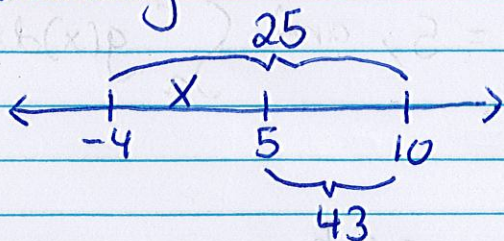 25
x
-4 5 10
43